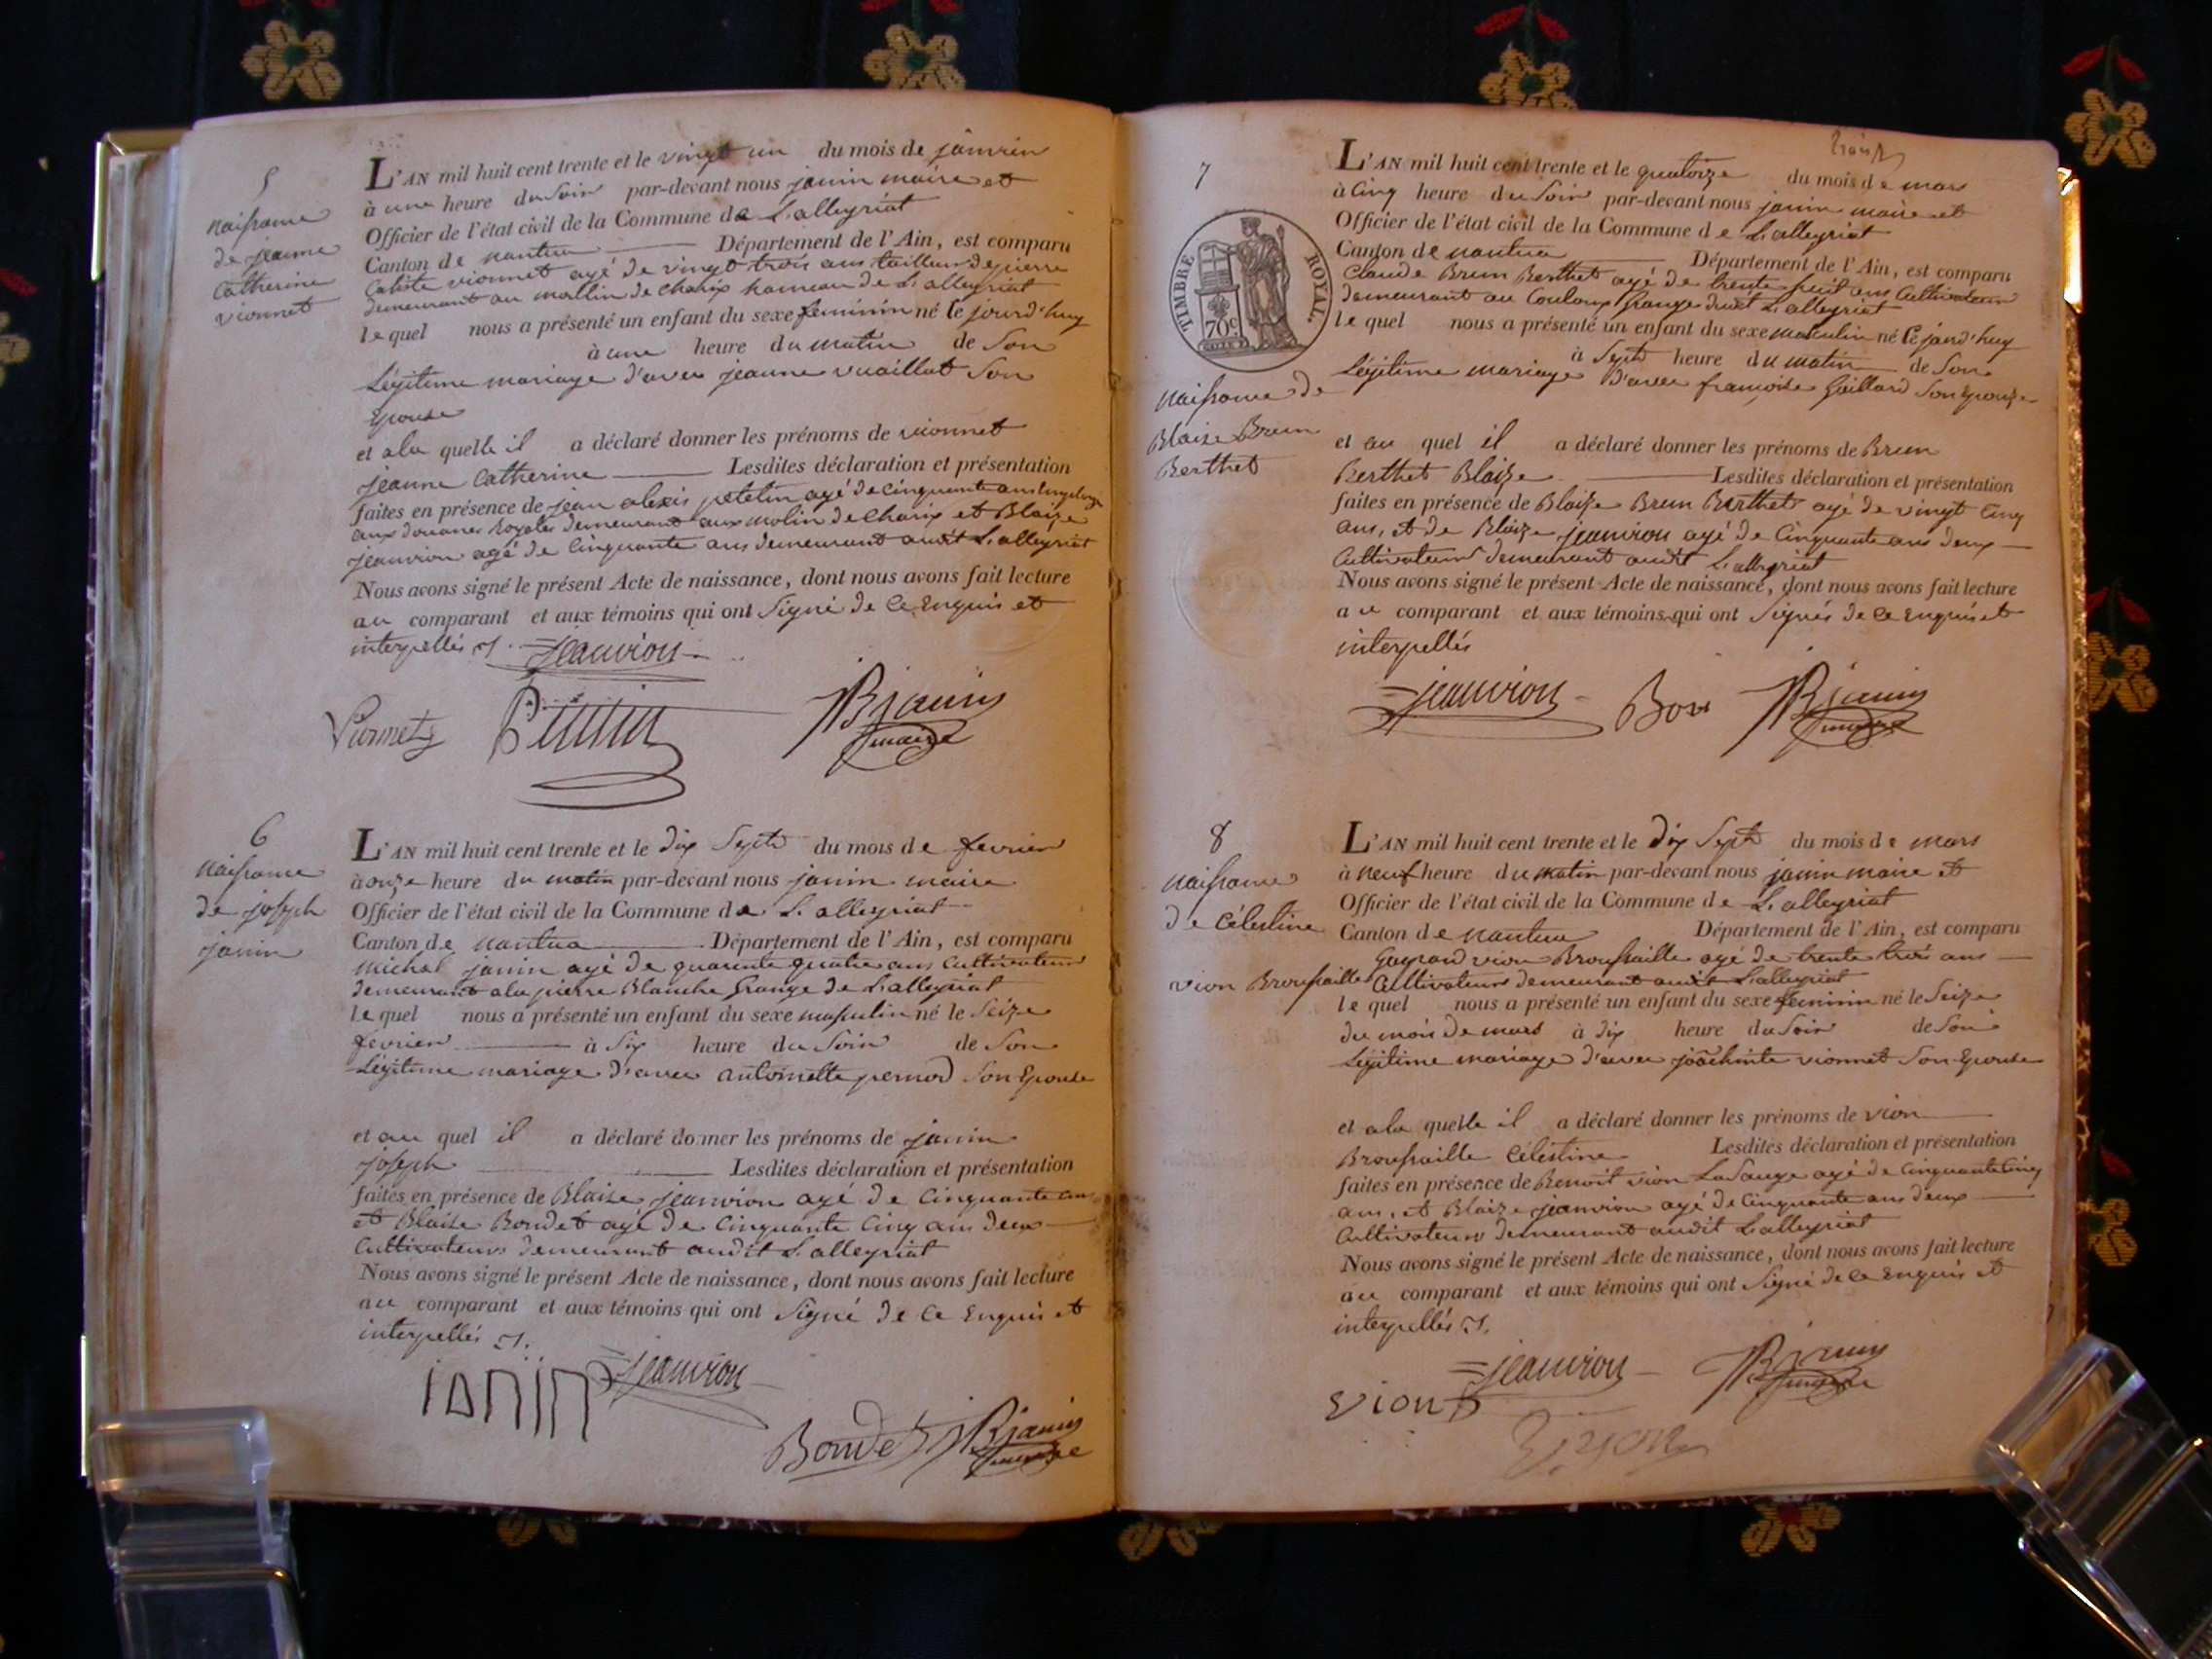 5
naissance
de jeanne
Catherine
vionnet
L'AN mil huit cent trente et le vingt un du mois de janvier
à une heure du Soir par-devant nous janin maire et
Officier de l'état civil de la Commune de L'alleyriat
Canton de nantua Département de l'Ain, est comparu
Caliste vionnet agé de vingt trois ans tailleur de pierre
demeurant au mollin de Charix hameau de L'alleyriat
lequel nous a présenté un enfant du sexe feminin né le jourd'huy
à une heure du matin de Son
Légitime mariage d'avec jeanne vuaillat Son
Epouse
et a la quelle il a déclaré donner les prénoms de vionnet
jeanne Catherine Lesdites déclaration et présentation
faites en présence de jean alexis petetin agé de cinquante ans
aux douanes Royales demeurant aux molin de Charix et Blaize
jeanvion agé de Cinquante ans demeurant audit L'alleyriat
Nous avons signé le présent Acte de naissance, dont nous avons fait lecture
au comparant et aux témoins qui ont Signé de Ce Enquis et
interpellés
jeanvion
Vionnet
JB janin
maire
6
naissance
de joseph
janin
L'AN mil huit cent trente et le dix Sept du mois de fevrier
à onze heure du matin par-devant nous janin maire
Officier de l'état civil de la Commune de L'alleyriat
Canton de nantua Département de l'Ain, est comparu
michel janin agé de quarente quatre ans Cultivateur
demeurant a la pierre Blanche Grange de L'alleyriat
le quel nous a présenté un enfant du sexe masculin né le Seize
fevrier à Six heure du Soir de Son
Légitime mariage d'avec antoinette pernod Son Epouse
et au quel il a déclaré donner les prénoms de janin
joseph Lesdites déclaration et présentation
faites en présence de Blaise jeanvion agé de Cinquante ans
et Blaise Bondet agé de Cinquante Cinq ans deux
Cultivateurs demeurant audit L'alleyriat
Nous avons signé le présent Acte de naissance, dont nous avons fait lecture
au comparant et aux témoins qui ont Signé de Ce Enquis et
interpellés
janin jeanvion
Bondet JB janin
maire
7
TIMBRE ROYAL.
70c
naissance de
Blaize Brun
Berthet
L'AN mil huit cent trente et le quatorze du mois de mars
à Cinq heure du Soir par-devant nous janin maire et
Officier de l'état civil de la Commune de L'alleyriat
Canton de nantua Département de l'Ain, est comparu
Claude Brun Berthet agé de trente huit ans Cultivateur
demeurant au Couloux Grange dudit L'alleyriat
le quel nous a présenté un enfant du sexe masculin né le jourd'huy
à Sept heure du matin de Son
Légitime mariage D'avec françoise Gaillard Son Epouse
et au quel il a déclaré donner les prénoms de Brun
Berthet Blaize Lesdites déclaration et présentation
faites en présence de Blaize Brun Berthet agé de vingt Cinq
ans, et de Blaize jeanvion agé de Cinquante ans deux
Cultivateurs demeurant audit L'alleyriat
Nous avons signé le présent Acte de naissance, dont nous avons fait lecture
au comparant et aux témoins qui ont Signés de Ce Enquis et
interpellés
jeanvion JB janin
maire
8
naissance
de Célestine
vion Broussaille
L'AN mil huit cent trente et le dix Sept du mois de mars
à neuf heure du matin par-devant nous janin maire et
Officier de l'état civil de la Commune de L'alleyriat
Canton de nantua Département de l'Ain, est comparu
Gaspard vion Broussaille agé de trente trois ans
Cultivateur demeurant audit L'alleyriat
le quel nous a présenté un enfant du sexe feminin né le Seize
du mois de mars à dix heure du Soir de Son
Légitime mariage d'avec joachinte vionnet Son Epouse
et a la quelle il a déclaré donner les prénoms de vion
Broussaille Célestine Lesdites déclaration et présentation
faites en présence de Benoit vion LaSauge agé de Cinquante Cinq
ans, et Blaize jeanvion agé de Cinquante ans deux
Cultivateurs demeurant audit L'alleyriat
Nous avons signé le présent Acte de naissance, dont nous avons fait lecture
au comparant et aux témoins qui ont Signé de Ce Enquis et
interpellés
jeanvion JB janin
maire
vion